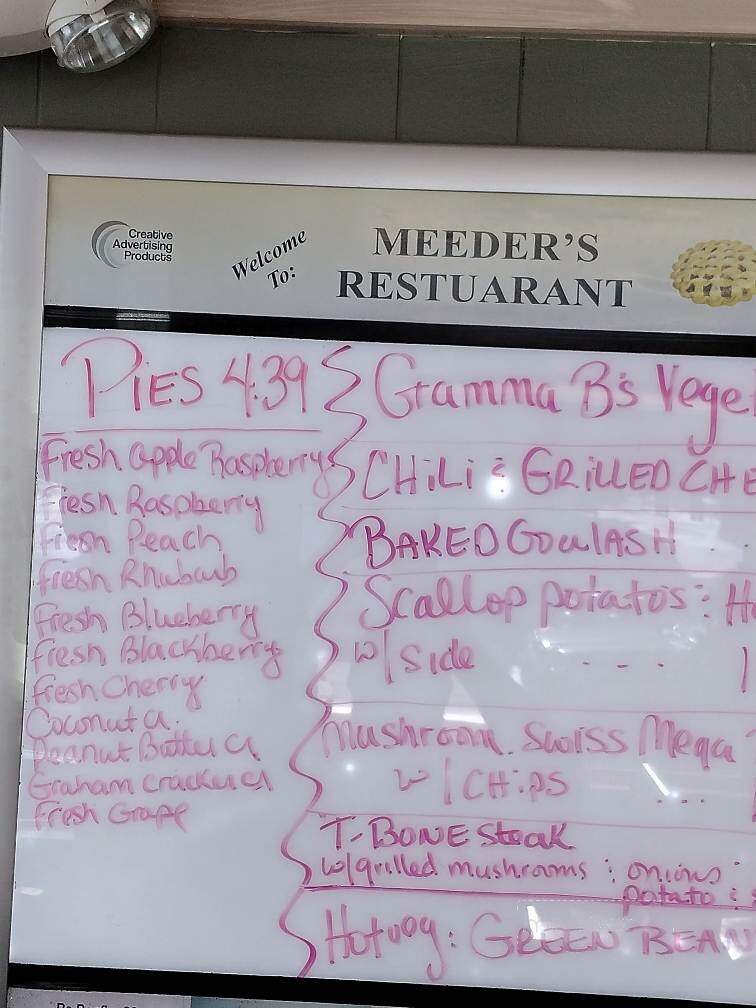 Creative
Advertising
Products
Welcome
To:
MEEDER'S
RESTUARANT
PIES 4.39
Fresh apple Raspberry
Fresh Raspberry
Fresh Peach
Fresh Rhubarb
Fresh Blueberry
Fresh Blackberry
Fresh Cherry
Coconut a.
Peanut Butter a
Graham cracker a
Fresh Grape
Gramma B's Vege
CHiLi & GRiLLED CHE
BAKED GOulASH . .
Scallop potatos: H
w/ Side . - - .
Mushroom Swiss Mega
w/ CHiPS ...
T-BONE Steak
w/grilled mushrooms : onions
potato :
Hotdog: GREEN BEAN